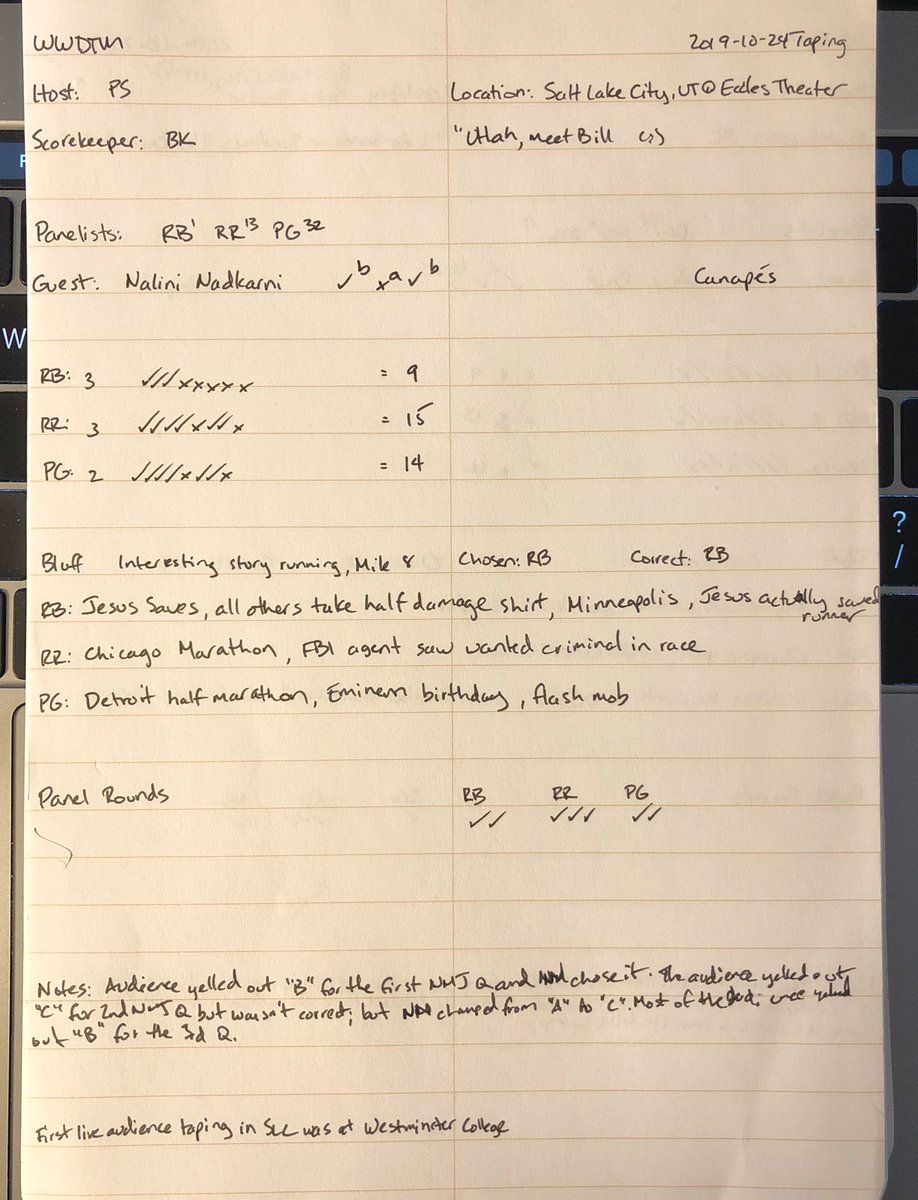 WWDTM 2019-10-24 Taping
Host: PS Location: Salt Lake City, UT @ Eccles Theater
Scorekeeper: BK "Utah, meet Bill
Panelists: RB¹ RR¹³ PG³²
Guest: Nalini Nadkarni ✓ᵇ ×ᵃ ✓ᵇ Canapés
RB: 3 ✓✓✓××××× = 9
RR: 3 ✓✓✓✓×✓✓× = 15
PG: 2 ✓✓✓✓×✓✓× = 14
Bluff Interesting story running, Mile 8 Chosen: RB Correct: RB
RB: Jesus Saves, all others take half damage shirt, Minneapolis, Jesus actually saved
runner
RR: Chicago Marathon, FBI agent saw wanted criminal in race
PG: Detroit half marathon, Eminem birthday, flash mob
Panel Rounds RB RR PG
✓✓ ✓✓✓ ✓✓
Notes: Audience yelled out "B" for the first NMJ Q and NN chose it. The audience yelled out
"C" for 2nd NMJ Q but wasn't correct; but NN changed from "A" to "C". Most of the audience yelled
out "B" for the 3rd Q.
First live audience taping in SLC was at Westminster College